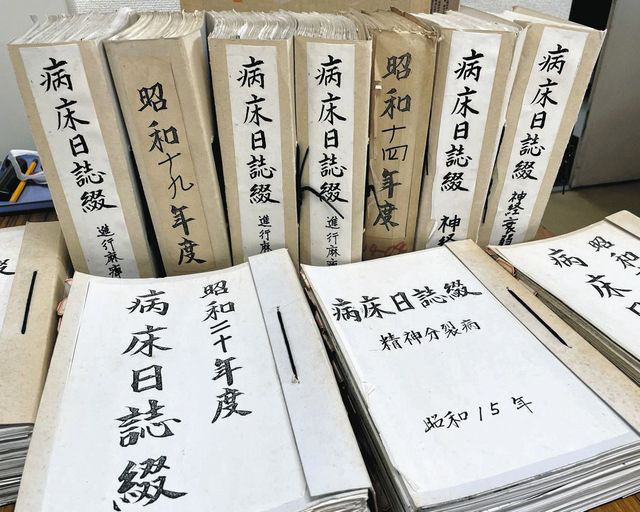 病床日誌綴
進行麻痺
昭和十九年度
病床日誌綴
進行麻
病床日誌綴
進行麻痺
昭和十四年度
病床日誌綴
神経
病床日誌綴
神経衰弱
昭和二十年度
病床日誌綴
病床日誌綴
精神分裂病
昭和15年
昭和
病床日